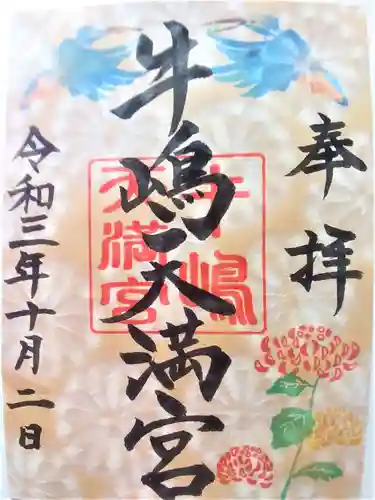 奉拝
牛嶋天満宮
牛嶋
天満宮
令和三年十月二日